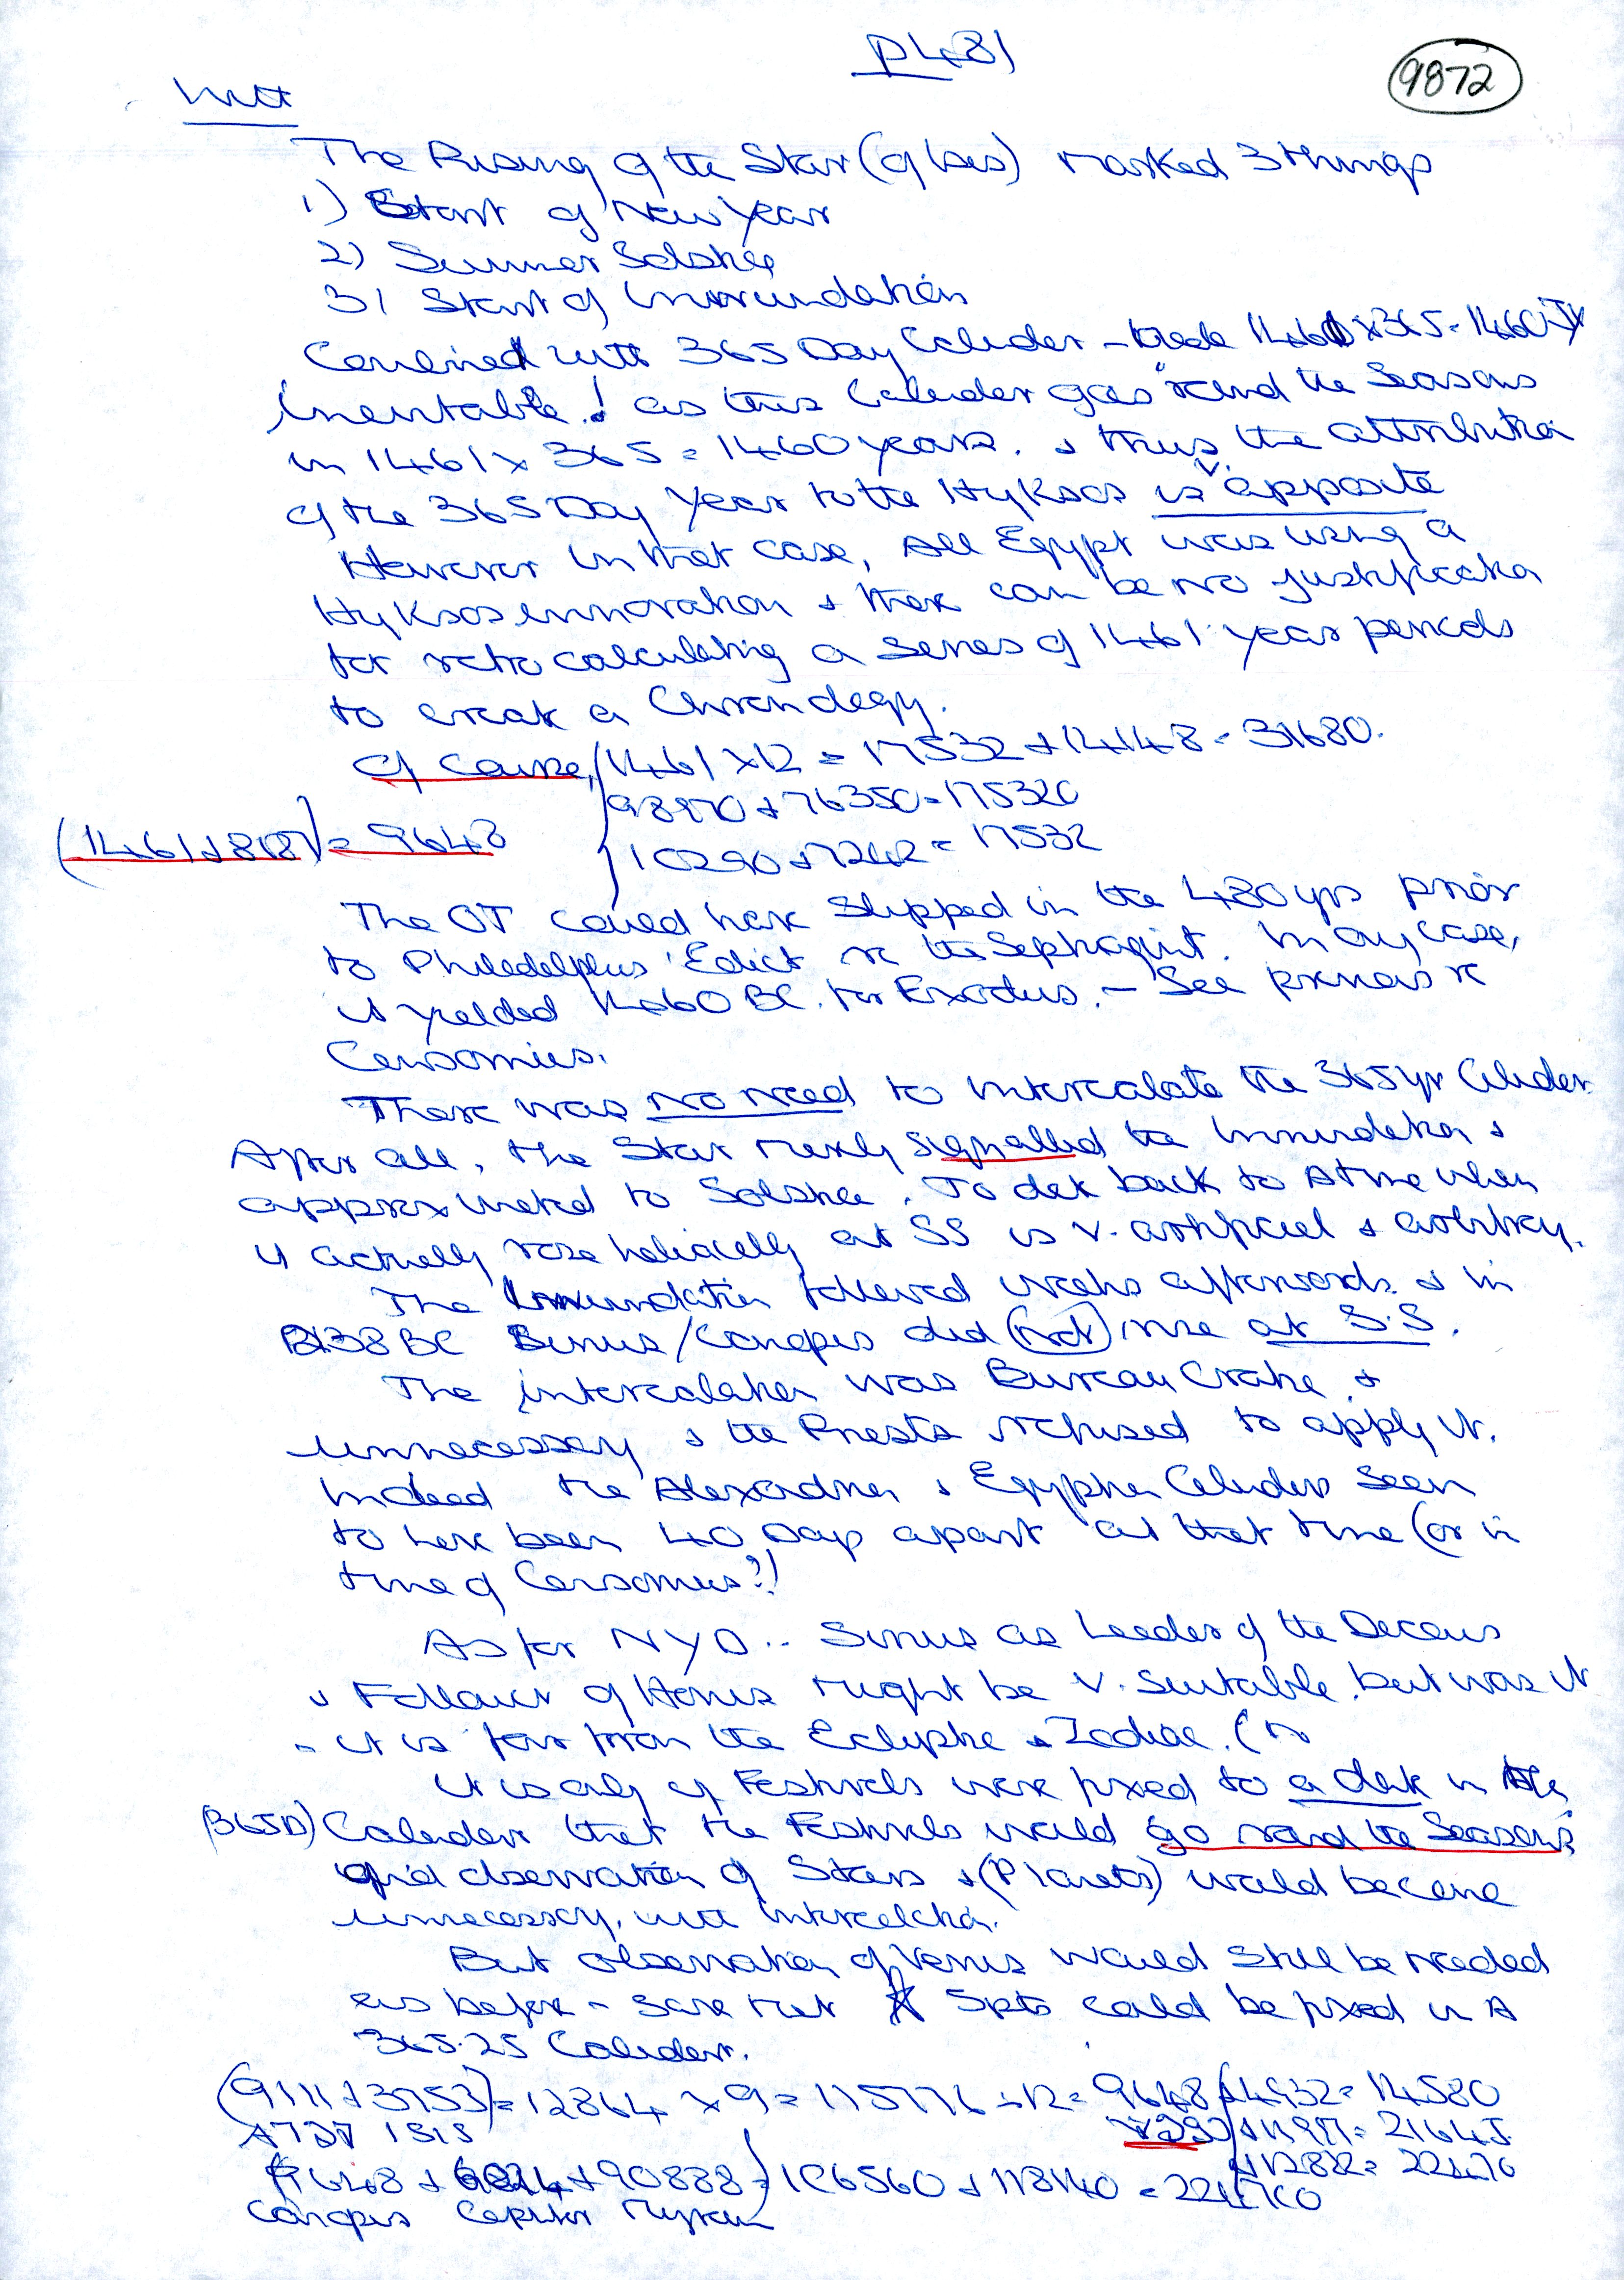 p481
9872
The Rising of the Star (of Isis) marked 3 things
1) Start of New Year
2) Summer Solstice
3) Start of Innundation
Combined with 365 Day Calender - made 1461 x 365 = 1460 JY
inevitable! as this Calender goes round the Seasons
in 1461 x 365 = 1460 years. & thus, the attribution
of the 365 Day Year to the Hyksos is apposite
However in that case, All Egypt was using a
Hyksos innovation & there can be no justification
for retro calculating a series of 1461 year periods
to create a Chronology.
Of course, 1461 x 12 = 17532 + 14148 = 31680.
98970 + 76350 = 175320
(1461 + 8187) = 9648
10290 + 7242 = 17532
The OT could have slipped in the 480 yrs prior
to Philadelphus' Edict re the Septuagint. In any case,
it yielded 1460 BC. for Exodus. - See previous re
Censorinus.
There was no need to intercalate the 365 yr Calender.
After all, the Star merely signalled the Innundation &
approximated to Solstice. To date back to A time when
it actually rose heliacally at SS is v. artificial & arbitrary.
The Innundation followed weeks afterwards & in
B138 BC Sirius/Canopus did (not) rise at S.S.
The intercalation was Bureaucratic &
unnecessary & the Priests refused to apply it.
Indeed the Alexandrian & Egyptian Calenders seem
to have been 40 Days apart at that time (or in
time of Censorinus?)
As for NYD .. Sirius as Leader of the Decans
& Follower of Horus might be v. suitable, but was it
- it is far from the Ecliptic & Zodiac. (
It is only if Festivals were fixed to a date in the
(365D) Calender that the Festivals would go round the Seasons
and observation of Stars & (Planets) would become
unnecessary, with intercalation.
But observation of Venus would still be needed
as before - save that 5 pts could be fixed in A
365.25 Calender.
(9111 + 3753) = 12864 x 9 = 115776 ÷ 12 = 9648 + 4932 = 14580
ISIS + 11997 = 21645
+ 12822 = 22470
9648 + 6024 + 90888 = 106560 + 118140 = 224700
Canopus